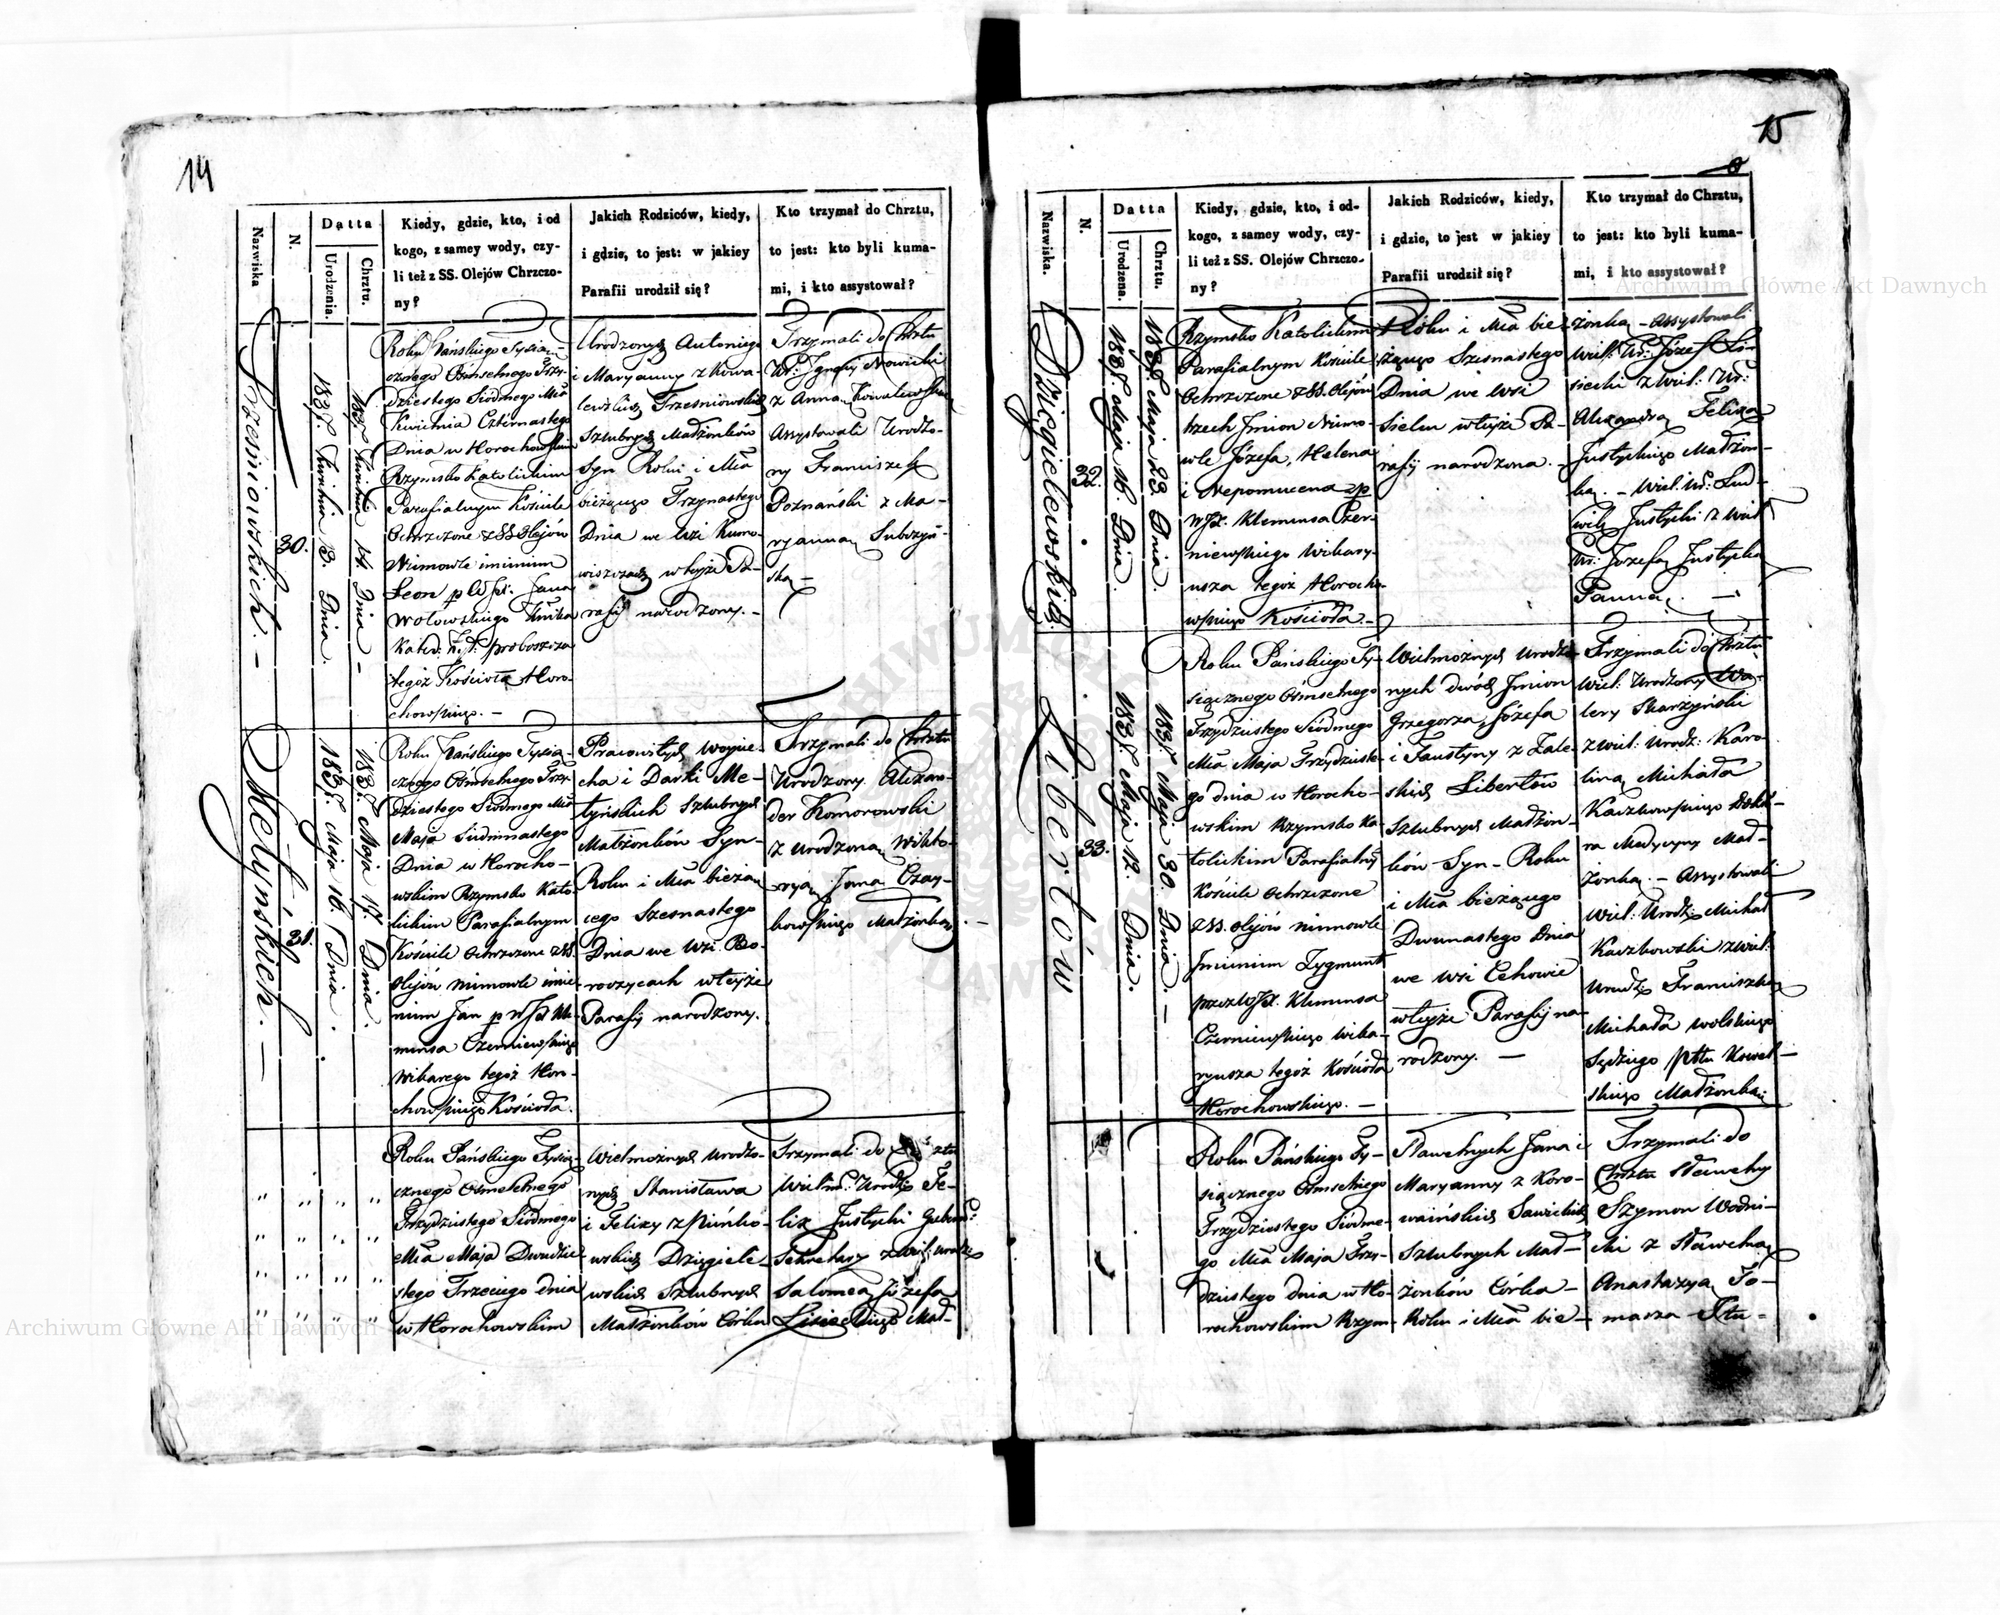 14
Nazwiska
N.
Datta
Urodzenia.
Chrztu.
Kiedy, gdzie, kto, i od
kogo, z samey wody, czy-
li też z SS. Olejów Chrzczo-
ny?
Jakich Rodziców, kiedy,
i gdzie, to jest: w jakiey
Parafii urodził się?
Kto trzymał do Chrztu,
to jest: kto byli kuma-
mi, i kto assystował?
Trześniowskich. —
30.
1837. Kwietnia 13. Dnia.
1837 Kwietnia 14. Dnia —
Roku Pańskiego Tysią-
cznego Ośmsetnego Trzy-
dziestego Siódmego Mca
Kwietnia Czternastego
Dnia w Horochowskim
Rzymsko Katolickim
Parafialnym Kościele
Ochrzczone z SS Olejów
Niemowle imieniem
Leon p W JX. Jana
Wołowskiego
Proboszcza
tegoż Kościoła Horo-
chowskiego. —
Urodzonych Antoniego
i Maryanny z Kowa-
lewskich Trześniowskich
Szlubnych Małżonków
Syn Roku i Mca
bieżącego Trzynastego
Dnia we Wsi
w teyże Pa-
rafij narodzony. —
Trzymali do Chrztu
Ur: Ignacy Nowicki
z Anną Kowalewską
Assystowali Urodzo-
ny Franciszek
Poznański z Ma-
ryanną
ską —
Metyńskich. —
31.
1837. Maja 16. Dnia.
1837. Maja 17. Dnia.
Roku Pańskiego Tysią-
cznego Ośmsetnego Trzy-
dziestego Siódmego Mca
Maja Siedmnastego
Dnia w Horocho-
wskim Rzymsko Kato-
lickim Parafialnym
Kościele Ochrzczone z SS.
Olejów niemowle imie-
niem Jan p W JX Kle-
mensa Czerniewskiego
Wikarego tegoż Horo-
chowskiego Kościoła.
Pracowitych Woycie-
cha i Darki Me-
tyńskich Szlubnych
Małżonków Syn-
Roku i Mca bieżą-
cego Szesnastego
Dnia we Wsi Bo-
roczycach w teyże
Parafij narodzony.
Trzymali do Chrztu
Urodzony Alexan-
der Komorowski
z Urodzoną Wikto-
ryą Jana Czay-
kowskiego Małżonką. —
Roku Pańskiego Tysią-
cznego Ośmsetnego
Trzydziestego Siódmego
Mca Maja Dwudzie-
stego Trzeciego dnia
w Horochowskim
Wielmożnych Urodzo-
nych Stanisława
i Felixy z Pińko-
wskich Dzięgiele-
wskich Szlubnych
Małżonków Córka
Trzymali do Chrztu
Wielm: Urodz: Fe-
lix Justycki Gubern:
Sekretarz z Wiel: Urodz:
Salomeą Józefa
Lisieckiego Mał-
15
8
Nazwiska.
N.
Datta
Urodzena.
Chrztu.
Kiedy, gdzie, kto, i od-
kogo, z samey wody, czy-
li też z SS. Olejów Chrzczo-
ny?
Jakich Rodziców, kiedy,
i gdzie, to jest w jakiey
Parafii urodził się?
Kto trzymał do Chrztu,
to jest: kto byli kuma-
mi, i kto assystował?
Dzięgielewskich.
32.
1837. Maja 16. Dnia.
1837. Maja 23. Dnia.
Rzymsko Katolickim
Parafialnym Kościele
Ochrzczone z SS. Olejów
trzech Imion Niemo-
wle Józefa, Helena
i Nepomucena p
W JX. Klemensa Czer-
niewskiego Wikary-
usza tegoż Horocho-
wskiego Kościoła —
Roku i Mca bie-
żącego Szesnastego
Dnia we Wsi
Sielcu w teyże Pa-
rafij narodzona. —
żonką — Assystowali
Wiel: Ur: Józef Li-
siecki z Wiel: Ur:
Alexandrą Felixa
Justyckiego Małżon-
ką. — Wiel: Ur: Lud-
wik Justycki z Wiel
Ur: Józefą Justycką
Panną. —
Libertów
33.
1837. Maja 12. Dnia.
1837. Maja 30. Dnia —
Roku Pańskiego Ty-
siącznego Ośmsetnego
Trzydziestego Siódmego
Mca Maja Trzydzieste-
go dnia w Horocho-
wskim Rzymsko Ka-
tolickim Parafialnym
Kościele Ochrzczone
z SS. olejów niemowle
Imieniem Zygmunt
przez W JX. Klemensa
Czerniewskiego Wika-
ryusza tegoż Kościoła
Horochowskiego. —
Wielmożnych Urodzo-
nych dwóch Imion
Grzegorza, Józefa
i Faustyny z Zale-
skich Libertów
Szlubnych Małżon-
ków — Syn — Roku
i Mca bieżącego
Dwunastego Dnia
we Wsi Cehowie
w teyże Parafij na-
rodzony. —
Trzymali do Chrztu
Wiel: Urodzony Wa-
lery Skarzyński
z Wiel: Urodz: Karo-
liną Michała
Kaczkowskiego Dokto-
ra Medycyny Mał-
żonką. — Assystowali
Wiel: Urodz: Michał
Kaczkowski z Wiel:
Urodz: Franciszką
Michała Wolskiego
Sędziego Pttu Kowel-
skiego Małżonką.
Roku Pańskiego Ty-
siącznego Ośmsetnego
Trzydziestego Siódme-
go Mca Maja Trzy-
dziestego dnia w Ho-
rochowskim Rzym-
Sławetnych Jana i
Maryanny z Koro-
waińskich Sawickich
Szlubnych Mał-
żonków Córka —
Roku i Mca bie-
Trzymali do
Chrztu Sławetny
Szymon Wodni-
cki z Sławetną
Anastazyą To-
masza Stu-
Archiwum Główne Akt Dawnych
Archiwum Główne Akt Dawnych